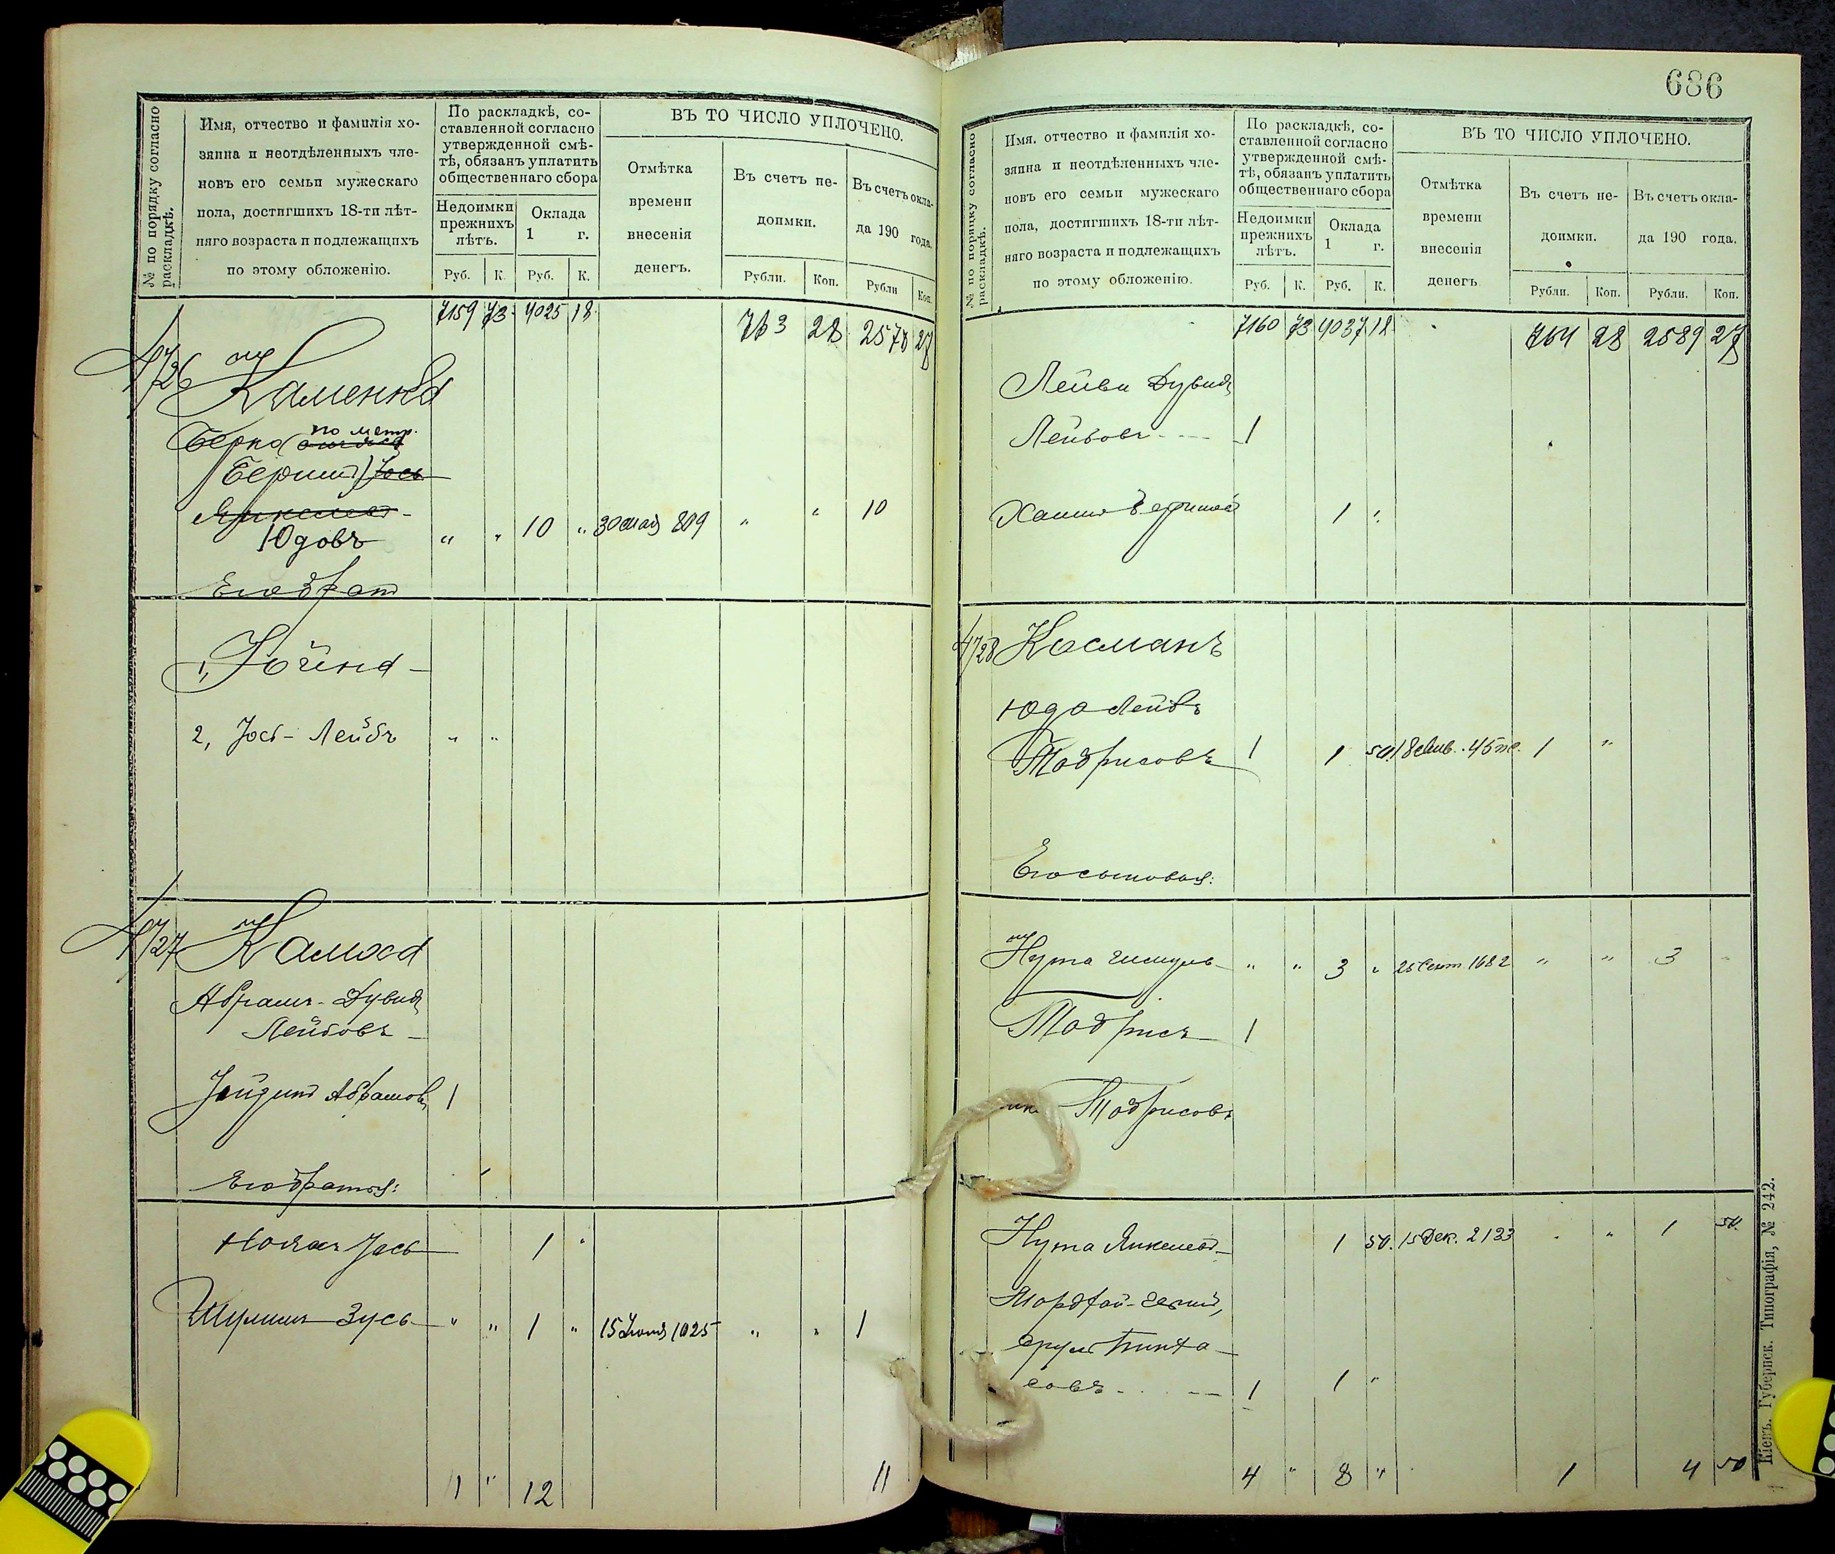 № по порядку согласно раскладкѣ.
Имя, отчество и фамилія хо-
зяина и неотдѣленныхъ чле-
новъ его семьи мужескаго
пола, достигшихъ 18-ти лѣт-
няго возраста и подлежащихъ
по этому обложенію.
По раскладкѣ, со-
ставленной согласно
утвержденной смѣ-
тѣ, обязанъ уплатить
общественнаго сбора
Недоимки прежнихъ лѣтъ.
Оклада 1 г.
Руб. К. Руб. К.
ВЪ ТО ЧИСЛО УПЛОЧЕНО.
Отмѣтка
времени
внесенія
денегъ.
Въ счетъ не-
доимки.
Въ счетъ окла-
да 190 года.
Рубли. Коп. Рубли Коп.
7159 73 4025 18 763 28 2578 27
4726
Каменка
Берко (по метр.
Бериш)
Юдовъ " " 10 " 30 мая 809 " " 10
Его братъ
1, Хойна
2, Іось-Лейбъ " "
4727
Камоха
Абрамъ-Дувидъ
Лейбовъ
Абрамовъ 1
Его братья:
Іось 1 "
Шулимъ Зусь " " 1 " 15 Іюня 1025 " " 1
1 " 12 11
686
№ по порядку согласно раскладкѣ.
Имя, отчество и фамилія хо-
зяина и неотдѣленныхъ чле-
новъ его семьи мужескаго
пола, достигшихъ 18-ти лѣт-
няго возраста и подлежащихъ
по этому обложенію.
По раскладкѣ, со-
ставленной согласно
утвержденной смѣ-
тѣ, обязанъ уплатить
общественнаго сбора
Недоимки прежнихъ лѣтъ.
Оклада 1 г.
Руб. К. Руб. К.
ВЪ ТО ЧИСЛО УПЛОЧЕНО.
Отмѣтка
времени
внесенія
денегъ
Въ счетъ не-
доимки.
Въ счетъ окла-
да 190 года.
Рубли. Коп. Рубли. Коп.
7160 73 4037 18 764 28 2589 27
Лейви Дувидъ
Лейбовъ 1
Хаимъ 1 "
4728 Косманъ
Юда Лейбъ
Тодрисовъ 1 1 50 18 Янв. 45 1 "
Его сыновья:
Нута Шмуль " " 3 " 25 Сент 1682 " " 3
Тодрисъ 1
Тодрисовъ
Нута Янкелевъ 1 50. 15 Дек. 2133 " 1 50
Мордхай
Сруль Пинха-
совъ 1 1 "
4 " 8 " 1 4 50
Кіевъ. Губернск. Типографія, № 242.